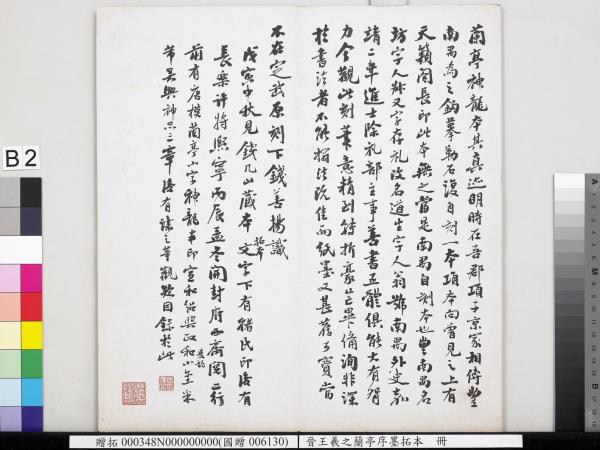 蘭亭神龍本其真迹明時在吾郡項子京家相傳豐
南禺為之鈎摹勒石復自刻一本項本向曾見之上有
天籟閣長印此本無之當是南禺自刻本也豐南禺名
坊字人叔又字存礼改名道生字人翁號南禺外史嘉
靖二年進士除礼部主事善書五體俱能大有腕
力今觀此刻筆意精到轉折豪芒畢備洵非深
於書法者不能搨法既佳而紙墨又甚舊可寶當
不在定武原刻下錢善揚識
戊寅中秋見錢几山藏本文字下有褚氏印後有
拓本
長樂許將熙寧丙辰孟冬開封府西齋閱二行
前有唐模蘭亭小字神龍半印宣和紹興政和小璽米
芾吳興神品三章後有諸之筆觀款因錄於此
B2
贈拓 000348N000000000(國贈 006130)
晉王羲之蘭亭序墨拓本 冊